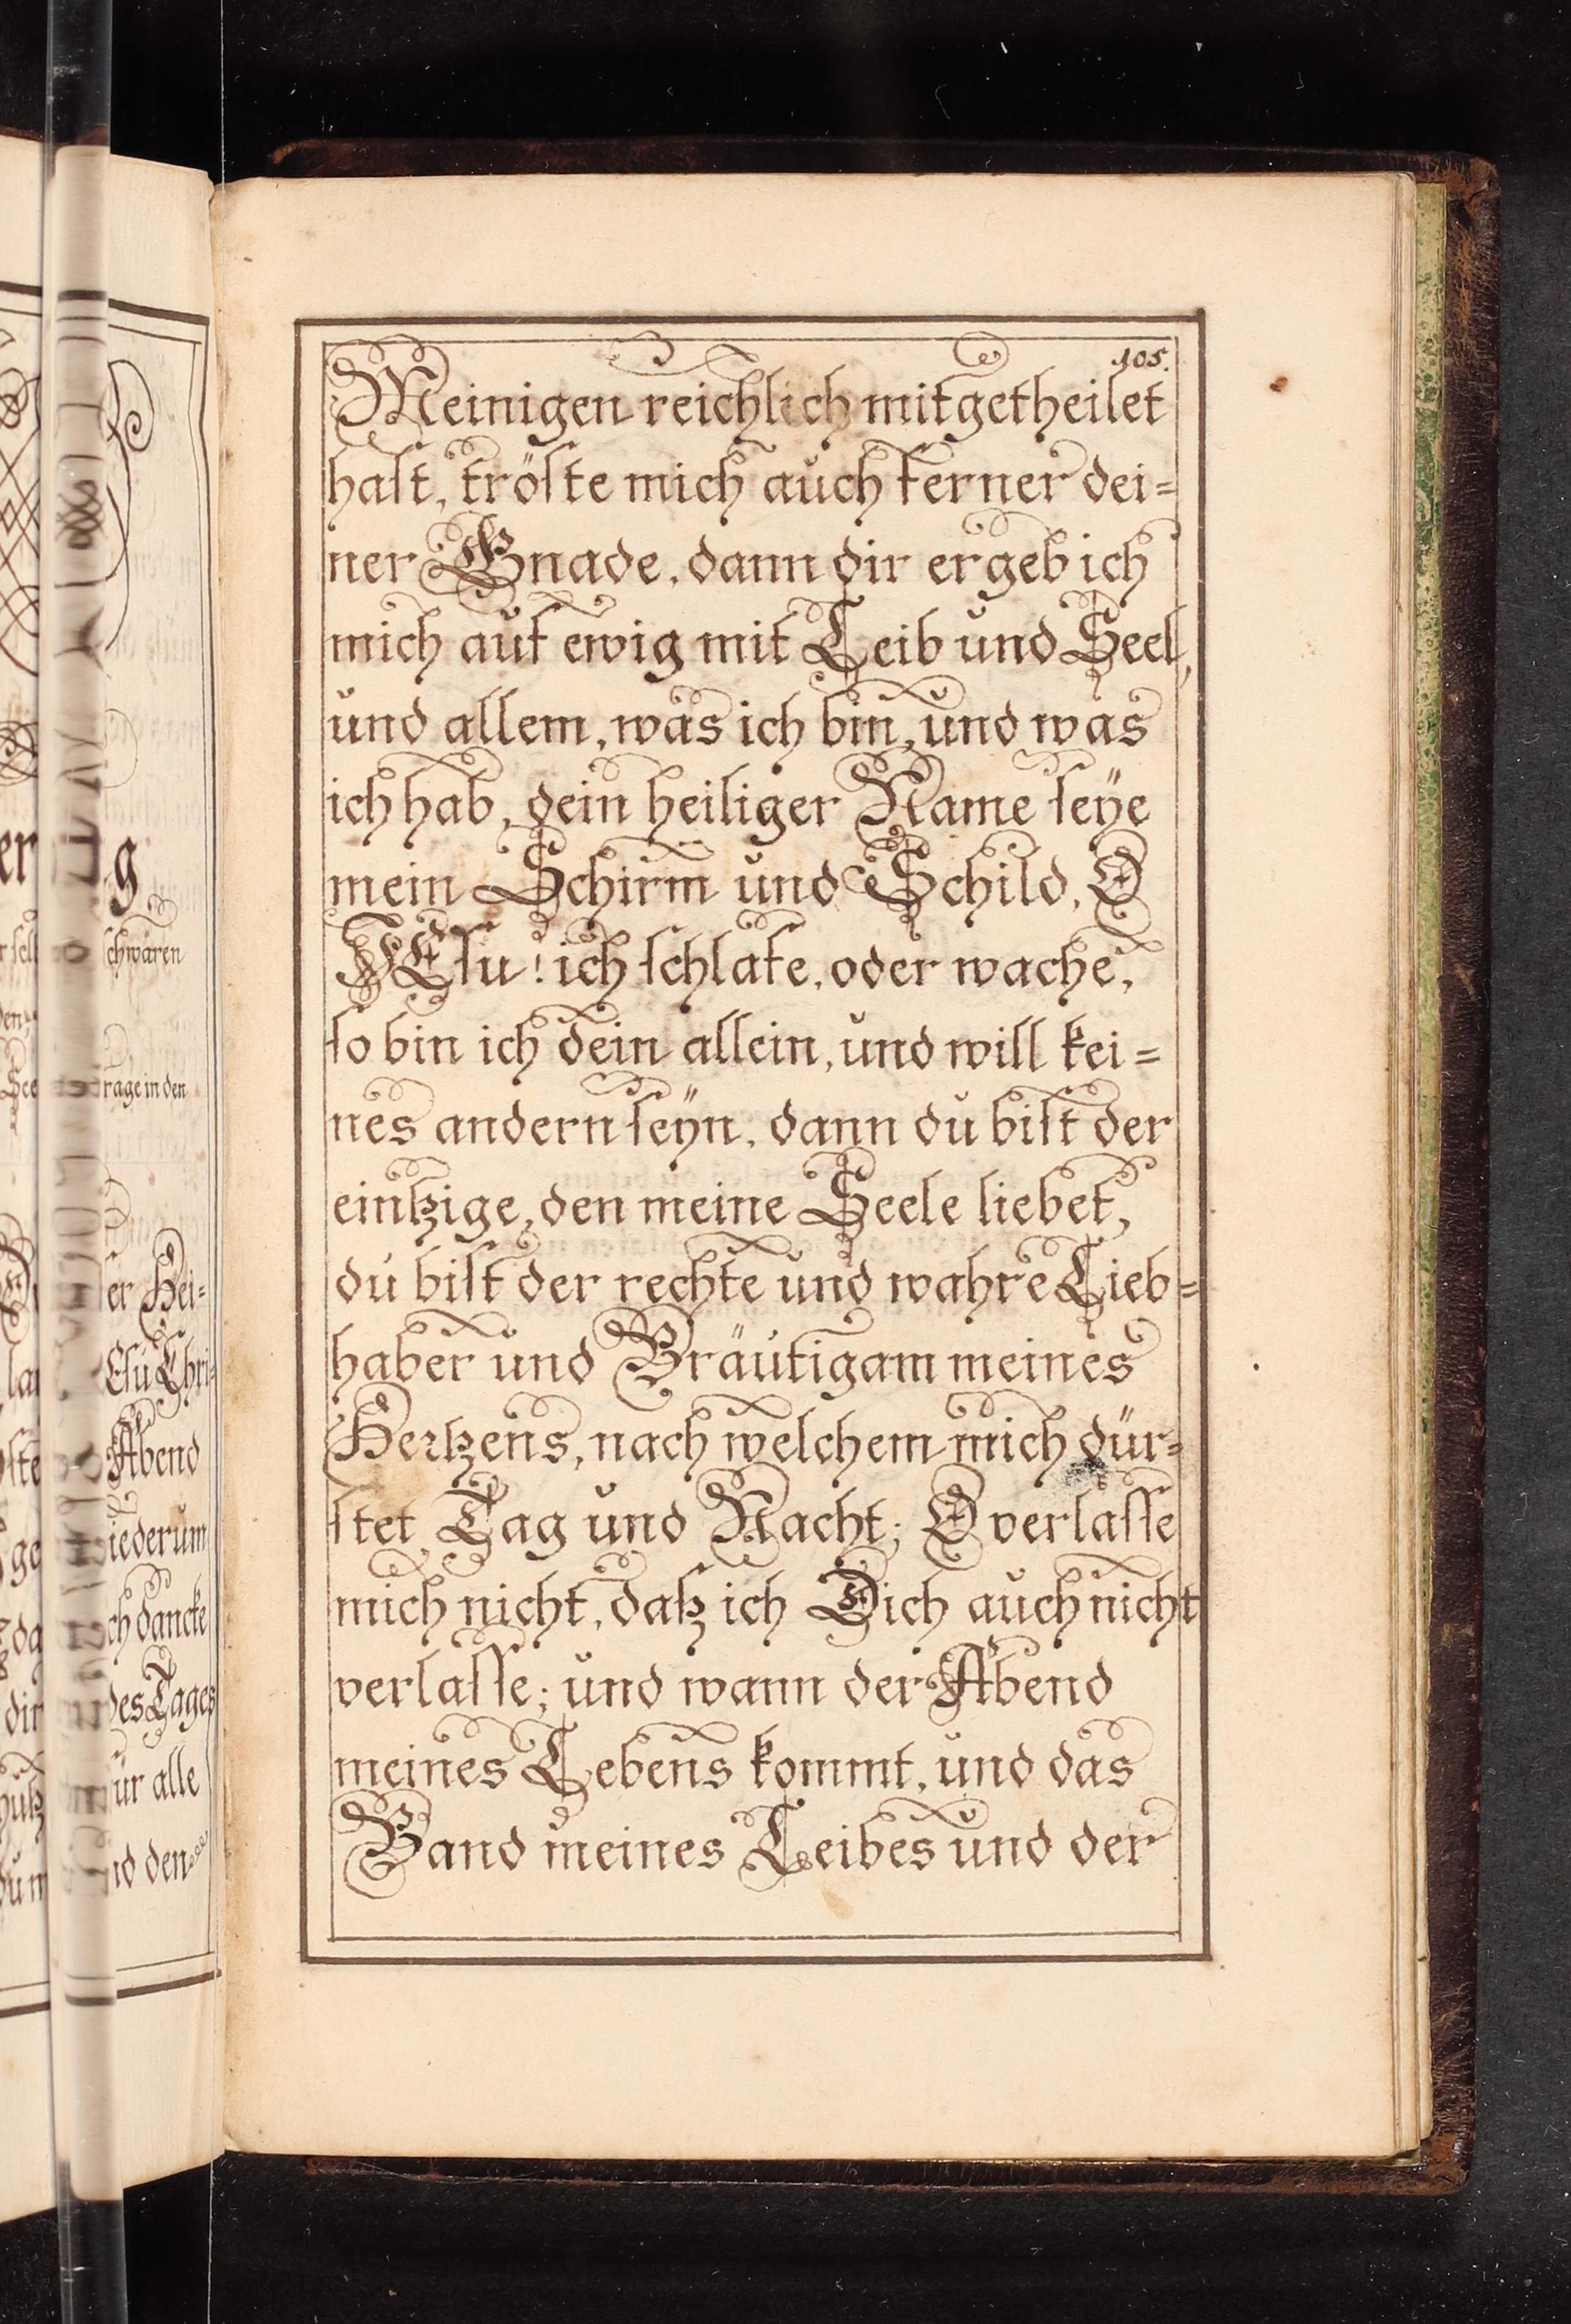 105.
Meinigen reichlich mitgetheilet
haſt, tröſte mich auch ferner dei=
ner Gnade, dann dir ergeb ich
mich auf ewig mit Leib und Seel,
und allem, was ich bin, und was
ich hab, dein heiliger Name ſeÿe
mein Schirm und Schild, O
JEſu! ich ſchlafe, oder wache,
ſo bin ich dein allein, und will kei=
nes andern ſeÿn, dann du biſt der
eintzige, den meine Seele liebet,
du biſt der rechte und wahre Lieb=
haber und Bräutigam meines
Hertzens, nach welchem mich dür=
ſtet Tag und Nacht; O verlaſſe
mich nicht, daß ich Dich auch nicht
verlaſſe; und wann der Abend
meines Lebens kommt, und das
Band meines Leibes und der
schwären
in den
er Hei=
Eſu Chri=
Abend
iederum
ch dancke
des Tages
ür alle
nd den